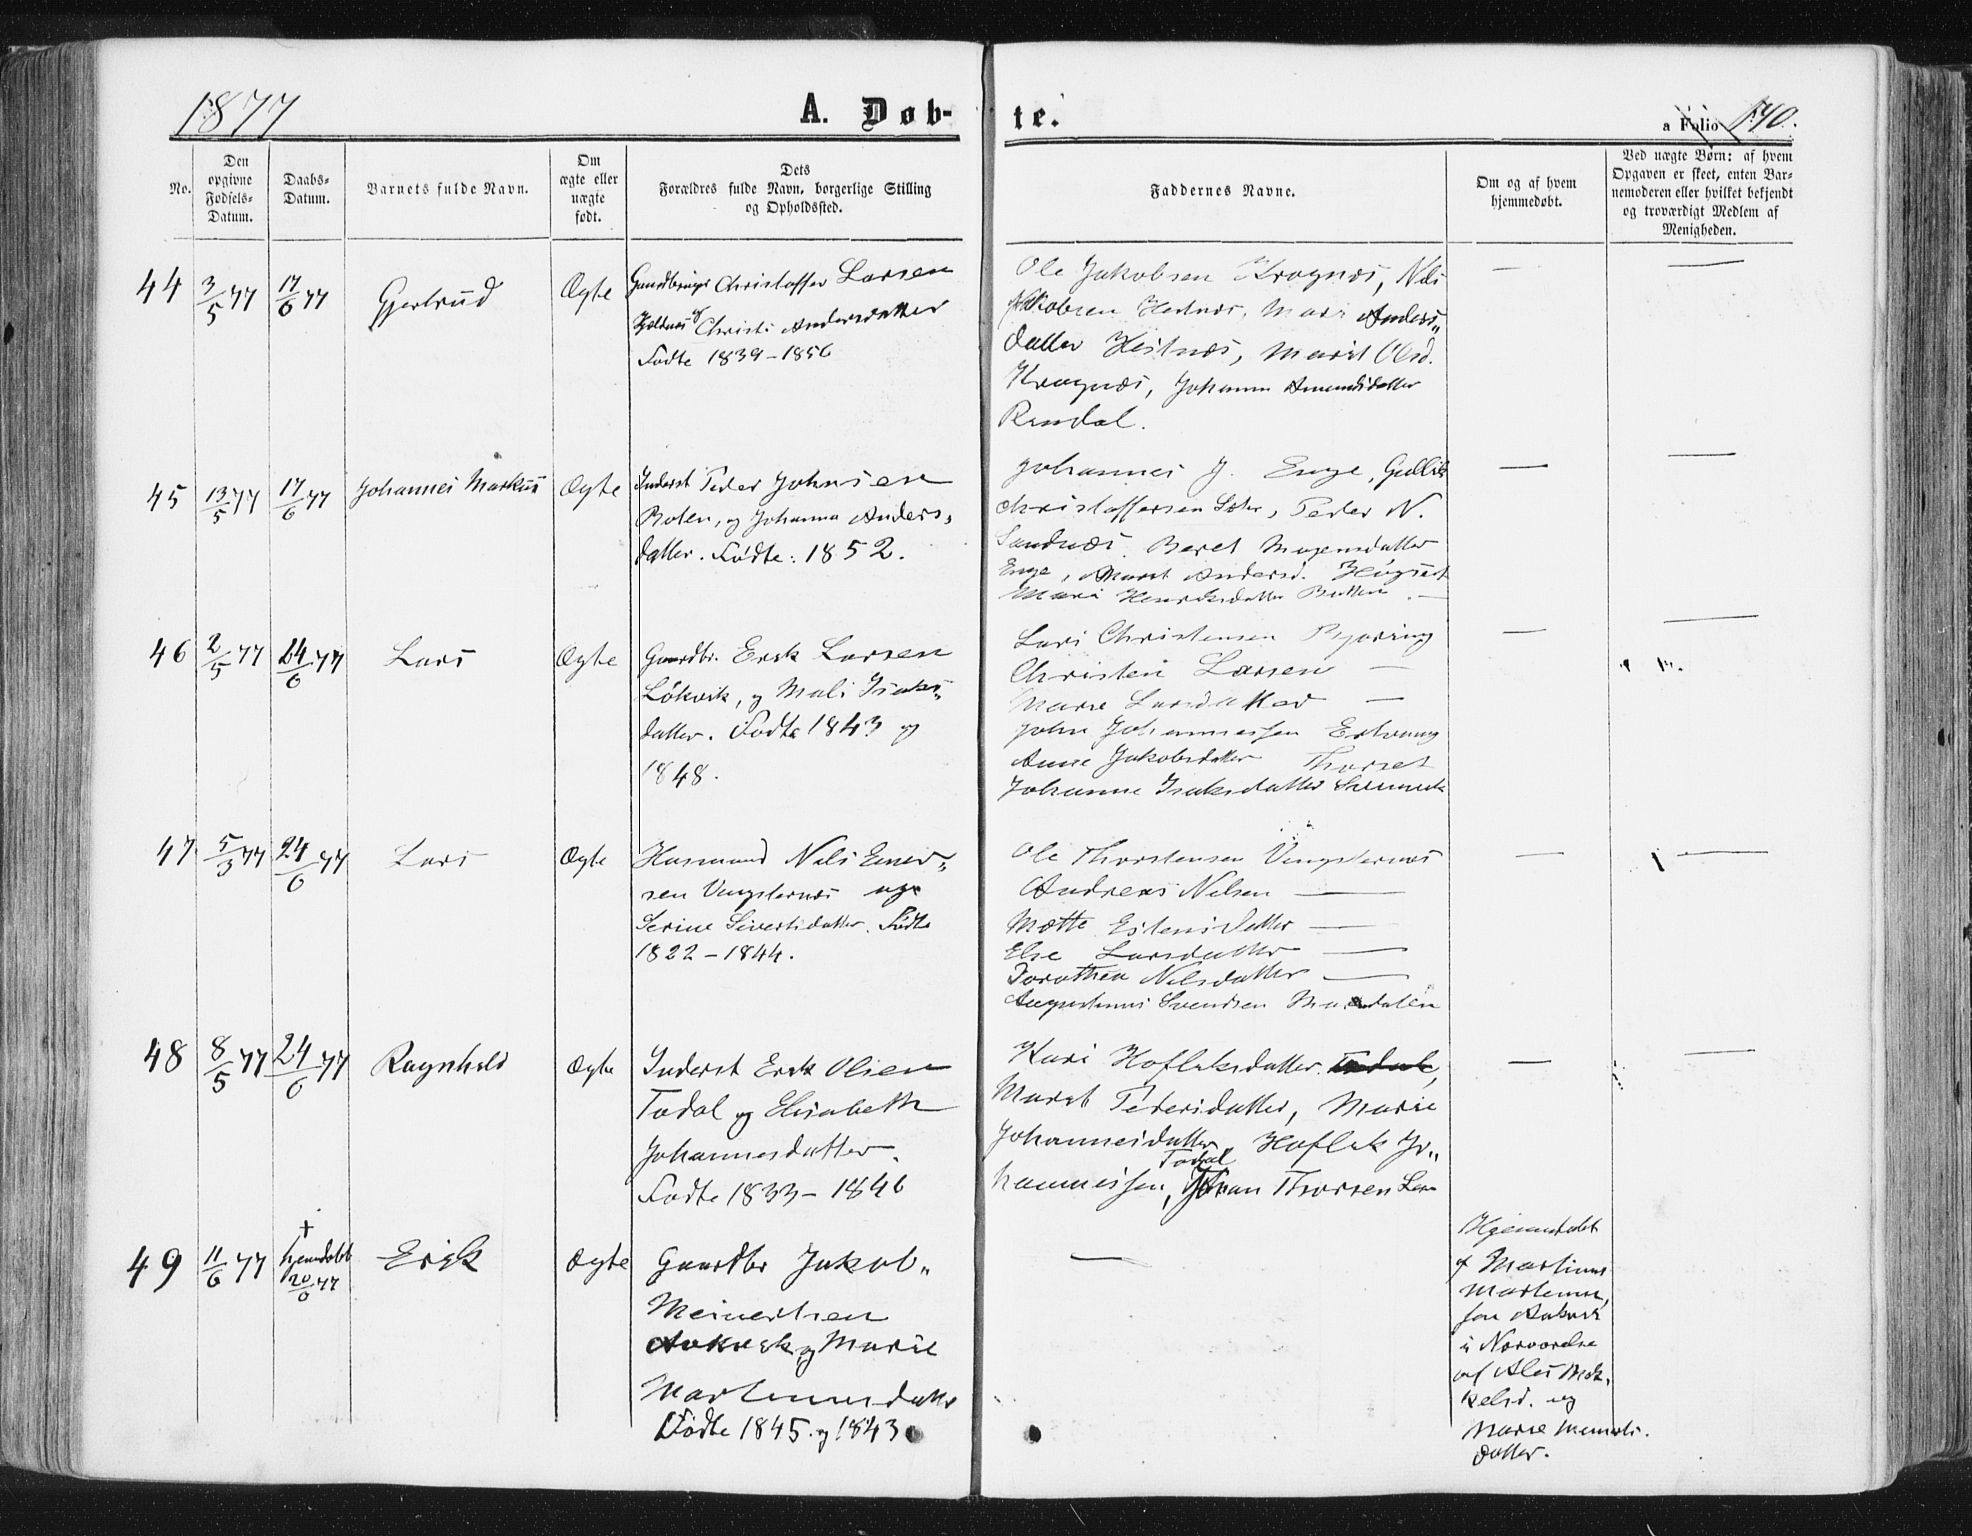 1877
A. Døb-
te.
a Folio 140.
No.
Den opgivne Fødsels-Datum.
Daabs-Datum.
Barnets fulde Navn.
Om ægte eller uægte født.
Dets Forældres fulde Navn, borgerlige Stilling og Opholdssted.
Faddernes Navne.
Om og af hvem hjemmedøbt.
Ved uægte Børn: af hvem Opgaven er skeet, enten Barnemoderen eller hvilket bekjendt og troværdigt Medlem af Menigheden.
44 3/5 77 17/6 77 Gjertrud Ægte
Christoffer Larsen
Christi Andersdatter
Fødte 1839-1856
Ole Jakobsen Kragnæs, Nils
Jakobsen Hestnæs, Mari Anders-
datter Hestnæs, Marit Olsd.
Kragnæs, Johanna Amundsdatter
Rendal.
45 13/5 77 17/6 77 Johannes Markus Ægte
Inderst Peder Johnsen
og Johanna Anders-
datter. Fødte: 1852.
Johannes J. Enge,
Christoffersen Peder N.
Sandnæs. Beret Mogensdatter
Enge, Marit Andersd.
Mari Henriksdatter
46 2/5 77 24/6 77 Lars Ægte
Gaardbr. Erik Larsen
Løkvik, og Mali Isaks-
datter. Fødte 1843 og
1848.
Lars Christensen
Christen Larsen —
Marie Larsdatter —
John Johannessen
Anne Jakobsdatter Thorset
Johanne Isaksdatter
47 5/3 77 24/6 77 Lars Ægte
Husmand Nils Einer-
sen Vingsternæs og
Serine Sivertsdatter. Fødte
1822-1844.
Ole Thorstensen Vingsternæs
Andreas Nilsen —
Mætte Estensdatter —
Else Larsdatter —
Dorothea Nilsdatter —
Augustinus Svendsen
48 8/5 77 24/6 77 Ragnhild Ægte
Inderst Erik Olsen
Todal og Elisabeth
Johannesdatter.
Fødte 1833-1846
Kari Hoflaksdatter.
Marit Pedersdatter, Marie
Johannesdatter, Hoflak Jo-
hannessen Todal, Johan Thorsen
49 11/6 77 hjemdøbt 20/6 77 Erik Ægte
Gaardbr Jakob
Meinertsen
og Marie
Martinusdatter
Fødte 1845 og 1843
Hjemmedøbt
af Martinus
Martinus-
sen
i Nærværelse
af Ales Mik-
kelsd. og
Marie Meinerts-
datter.